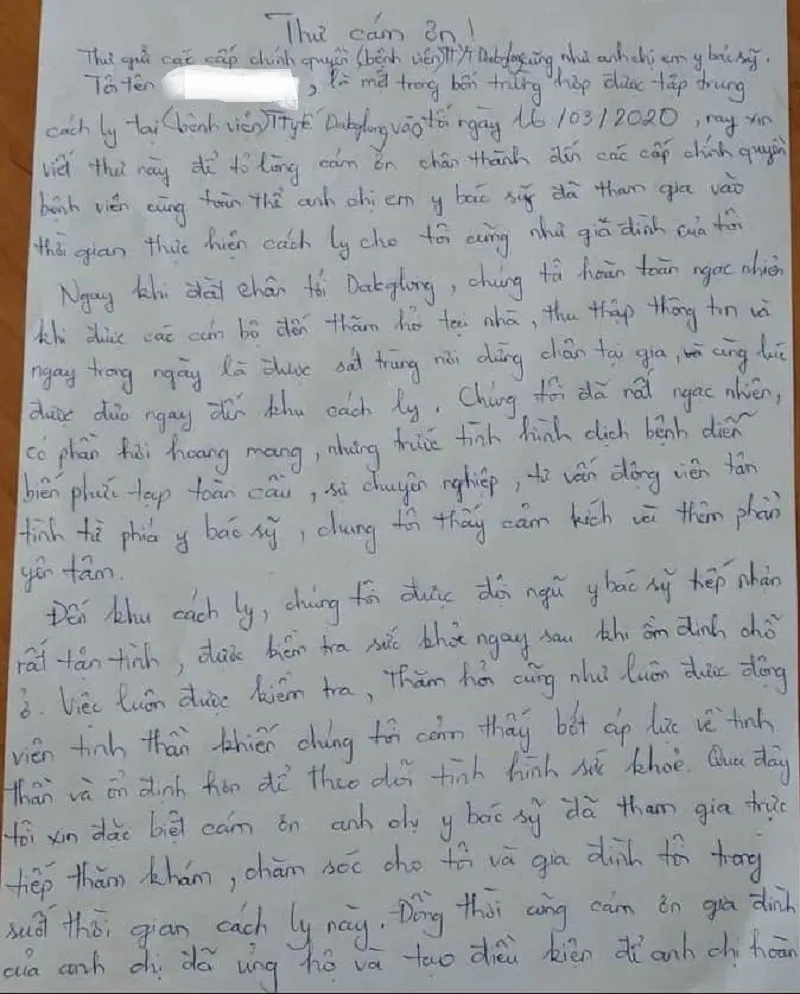 Thư cám ơn!
Thư gửi các cấp chính quyền (bệnh viện) TTYT Dakglong cũng như anh chị em y bác sỹ.
Tôi tên , là một trong bốn trường hợp được tập trung
cách ly tại (bệnh viện) TTytế Dakglong vào tối ngày 16/03/2020, nay xin
viết thư này để tỏ lòng cám ơn chân thành đến các cấp chính quyền
bệnh viện cùng toàn thể anh chị em y bác sỹ đã tham gia vào
thời gian thực hiện cách ly cho tôi cũng như giă đình của tôi
Ngay khi đặt chân tới Dakglong, chúng tô hoàn toàn ngạc nhiên
khi được các cán bộ đến thăm hỏ tại nhà, thu thập thông tin và
ngay trong ngày là được sát trùng nơi dừng chân tại gia, và cùng lúc
được đưa ngay đến khu cách ly. Chúng tôi đã rất ngạc nhiên,
có phần hơi hoang mang, nhưng trước tình hình dịch bệnh diễn
biến phức tạp toàn cầu, sự chuyên nghiệp, tư vấn động viên tận
tình từ phía y bác sỹ, chúng tôi thấy cảm kích và thêm phần
yên tâm.
Đến khu cách ly, chúng tôi được đội ngũ y bác sỹ tiếp nhận
rất tận tình, được kiểm tra sức khỏe ngay sau khi ổn định chỗ
ở. Việc luôn được kiểm tra, thăm hỏi cũng như luôn được động
viên tinh thần khiến chúng tôi cảm thấy bớt áp lực về tinh
thần và ổn định hơn để theo dõi tình hình sức khỏe. Qua đây
tôi xin đặc biệt cám ơn anh chị y bác sỹ đã tham gia trực
tiếp thăm khám, chăm sóc cho tôi và gia đình tôi trong
suốt thời gian cách ly này. Đồng thời cũng cám ơn gia đình
của anh chị đã ủng hộ và tạo điều kiện để anh chị hoàn